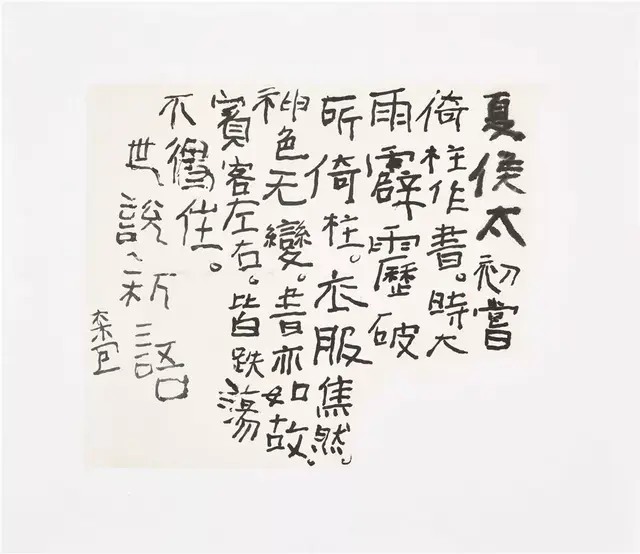 夏侯太初嘗
倚柱作書。時大
雨霹靂破
所倚柱。衣服焦然。
神色无變。書亦如故。
賓客左右。皆跌蕩
不得住。
世說新語